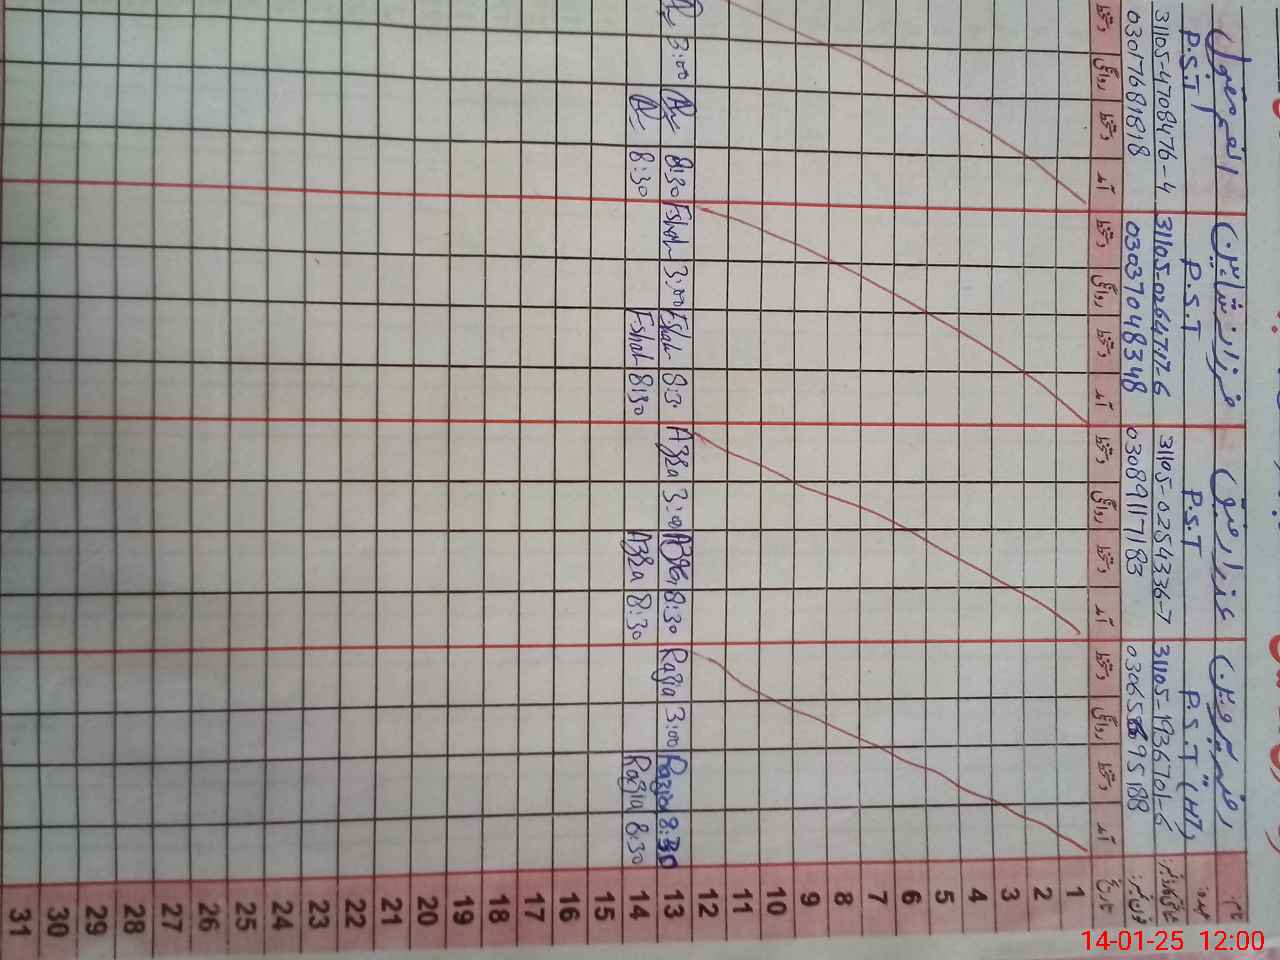 نام رضیہ پروین عذرا رفیق فرزانہ شاہین انعم بتول
عہدہ P.S.T (HT) P.S.T P.S.T P.S.T
شناختی کارڈ نمبر: 31105-1936701-6 31105-0254336-7 31105-0264717-6 31105-4708476-4
فون نمبر: 03089117183 03037048348 03017681818
تاریخ آمد دستخط روانگی دستخط آمد دستخط روانگی دستخط آمد دستخط روانگی دستخط آمد دستخط روانگی دستخط
1
2
3
4
5
6
7
8
9
10
11
12
13 8:30 Razia 3:00 Razia 8:30 Azra 3:00 Azra 8:30 Fshah 3:00 Fshah 8:30 3:00
14 8:30 Razia 8:30 Azra 8:30 Fshah 8:30
15
16
17
18
19
20
21
22
23
24
25
26
27
28
29
30
31
14-01-25 12:00